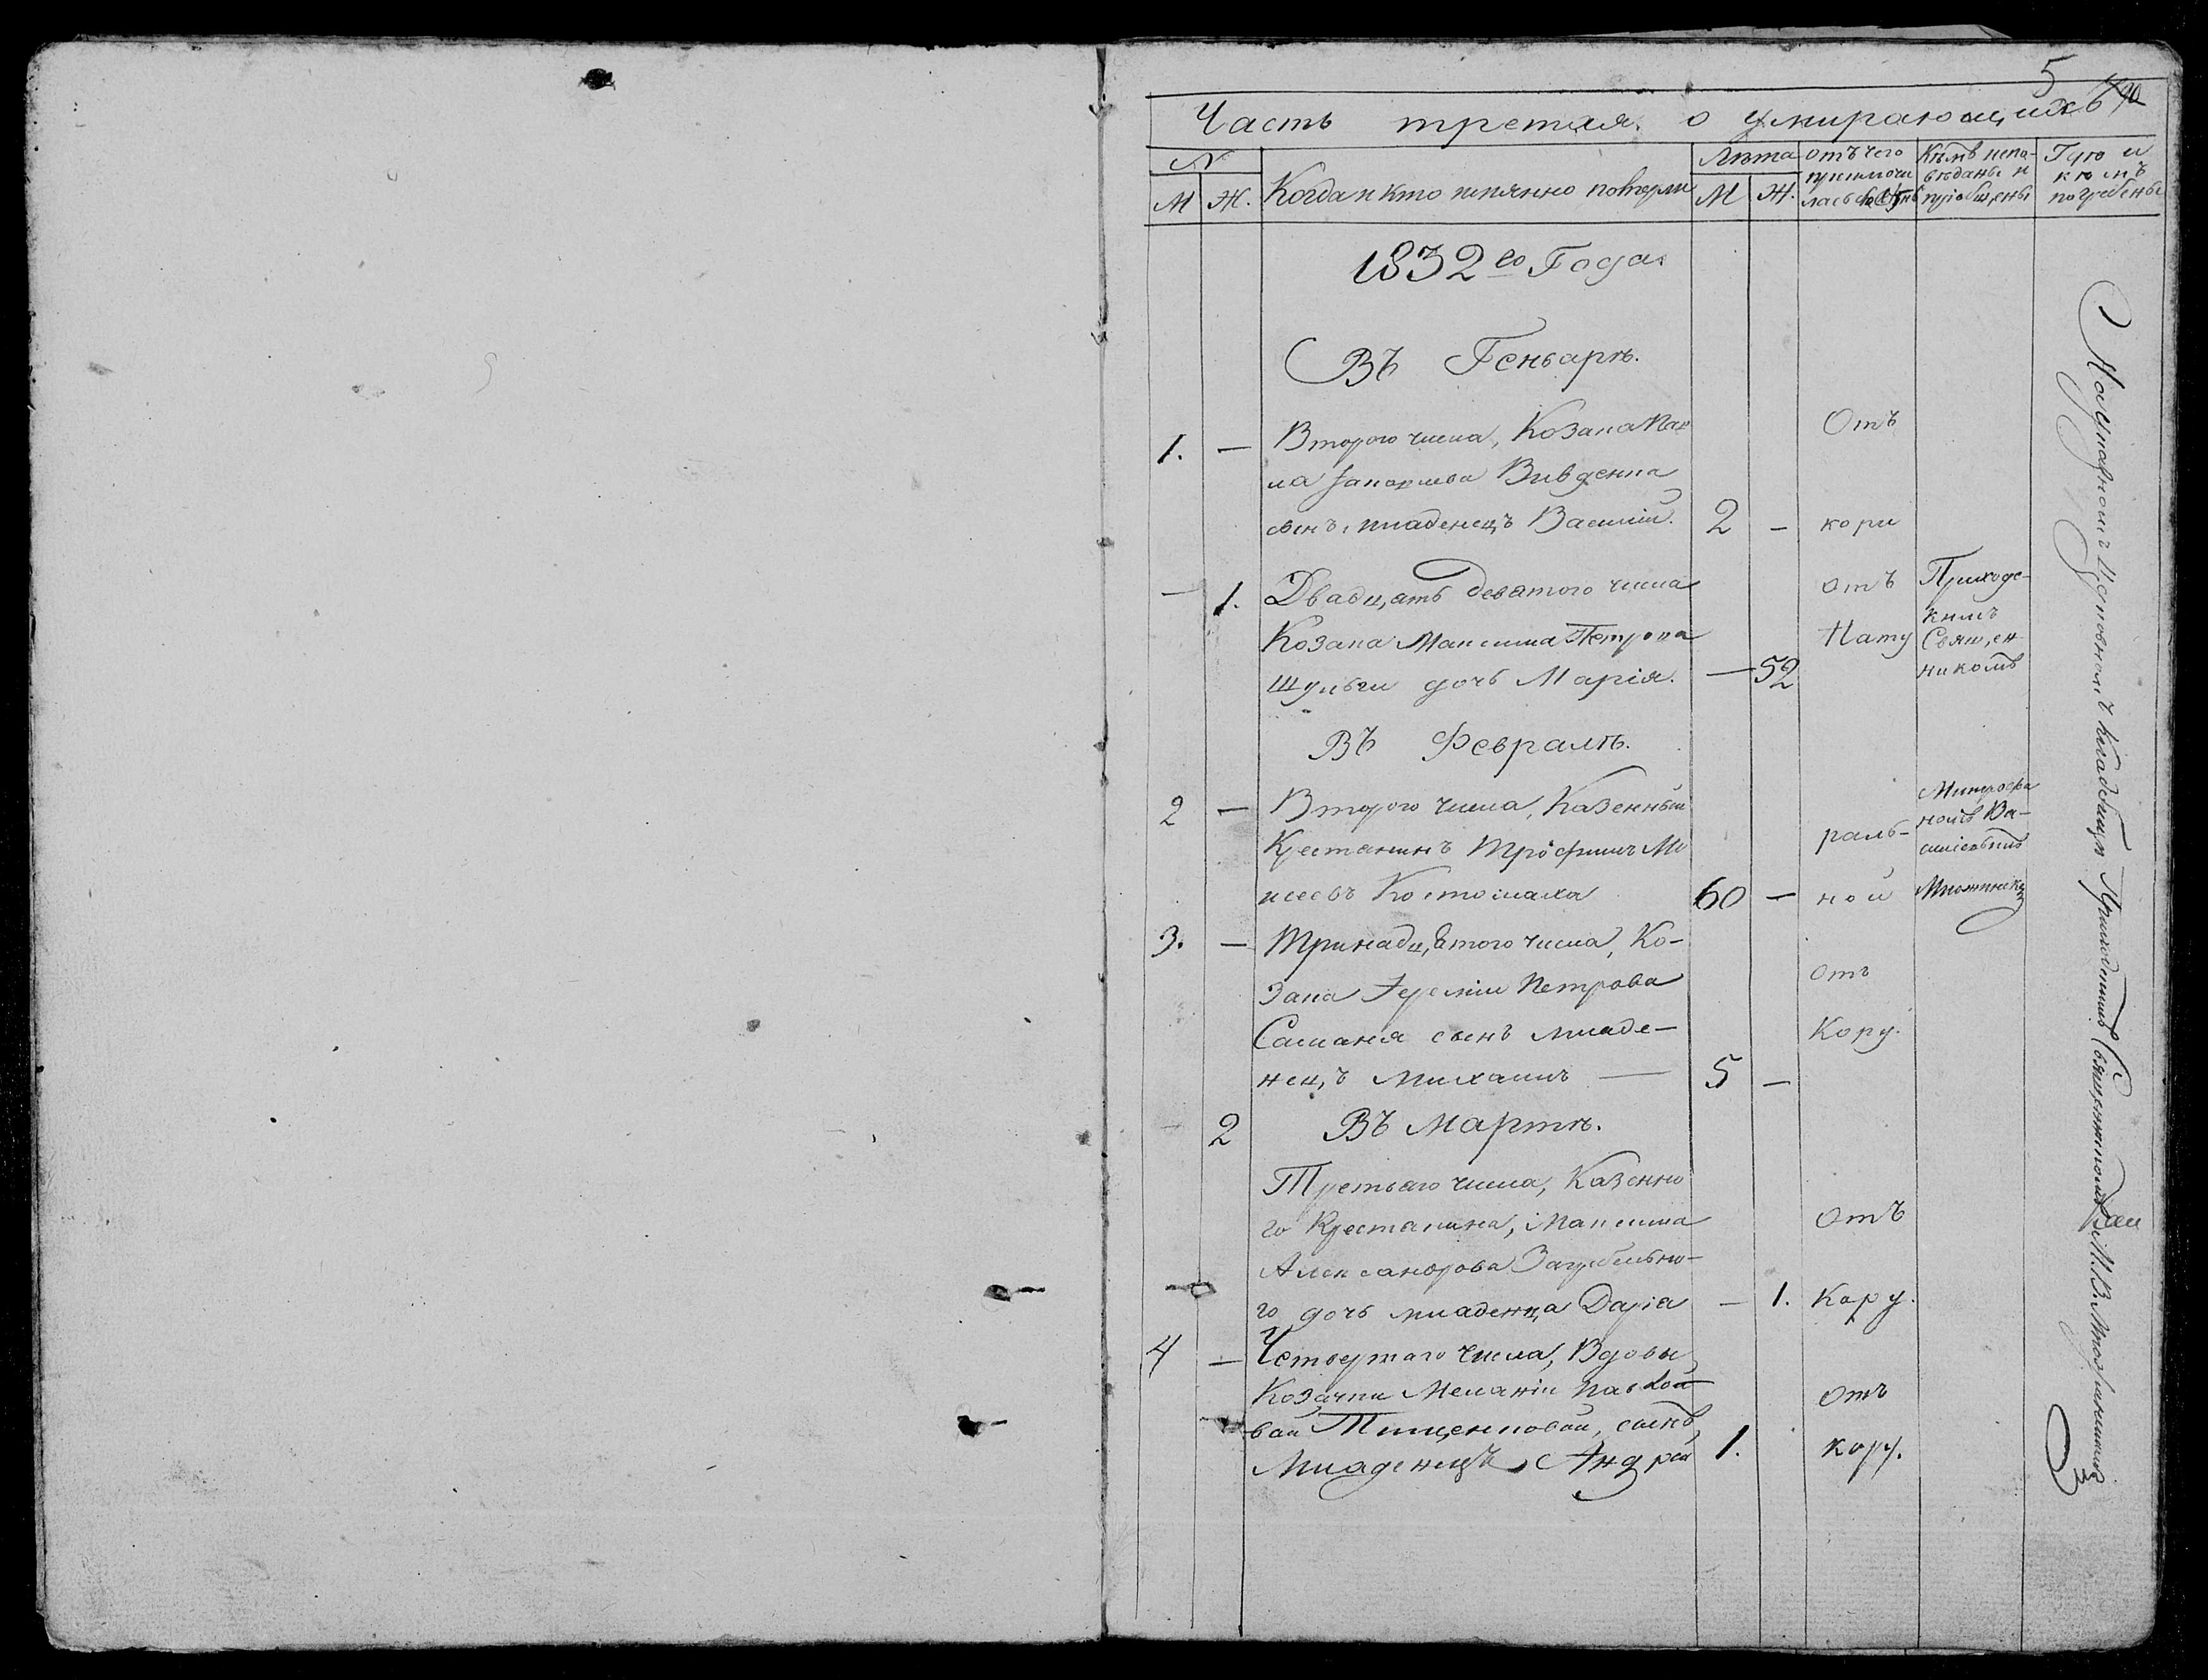 5
Часть третая о умирающихъ
№
М Ж.
Когда и кто имянно померли
Лѣта
М Ж.
отъ чего
приключи
лась смерть
Кѣмъ испо-
вѣданы и
пріобщены
Гдѣ и
кѣмъ
погребены
1832го Года.
Въ Геньварѣ.
1. — Второго числа, Козака Пав
ла Вивденка
сынъ младенецъ Василій. 2 —
Отъ
кори
— 1. Двадцать девятого числа
Козака Максима Петрова
Шульги дочь Марія. — 52
отъ
Нату
Приходс-
кимъ
Священ
никомъ
Въ Февралѣ.
2 — Второго числа, Казенный
Крестанинъ Трофимъ Мо
исеевъ Костомаха 60 —
раль-
ной
Митрофа
номъ Ва-
силіевымъ
3. — Тринадцатого числа, Ко-
зака Іереміи Петрова
сынъ младе-
нецъ Михаилъ — 5 —
отъ
Кору.
2 Въ Мартѣ.
Третьаго числа, Казенно
го Крестанина, Максима
Александрова Загребельно-
го дочь младенца Дарія — 1.
отъ
Кору.
4 — Четвертаго числа, Вдовы
Козачки Меланіи Павло
вой Тищенковой, сынъ
Младенецъ Андрей 1.
отъ
кору.
На Кладбищѣ Приходскимъ Священникомъ М. В.